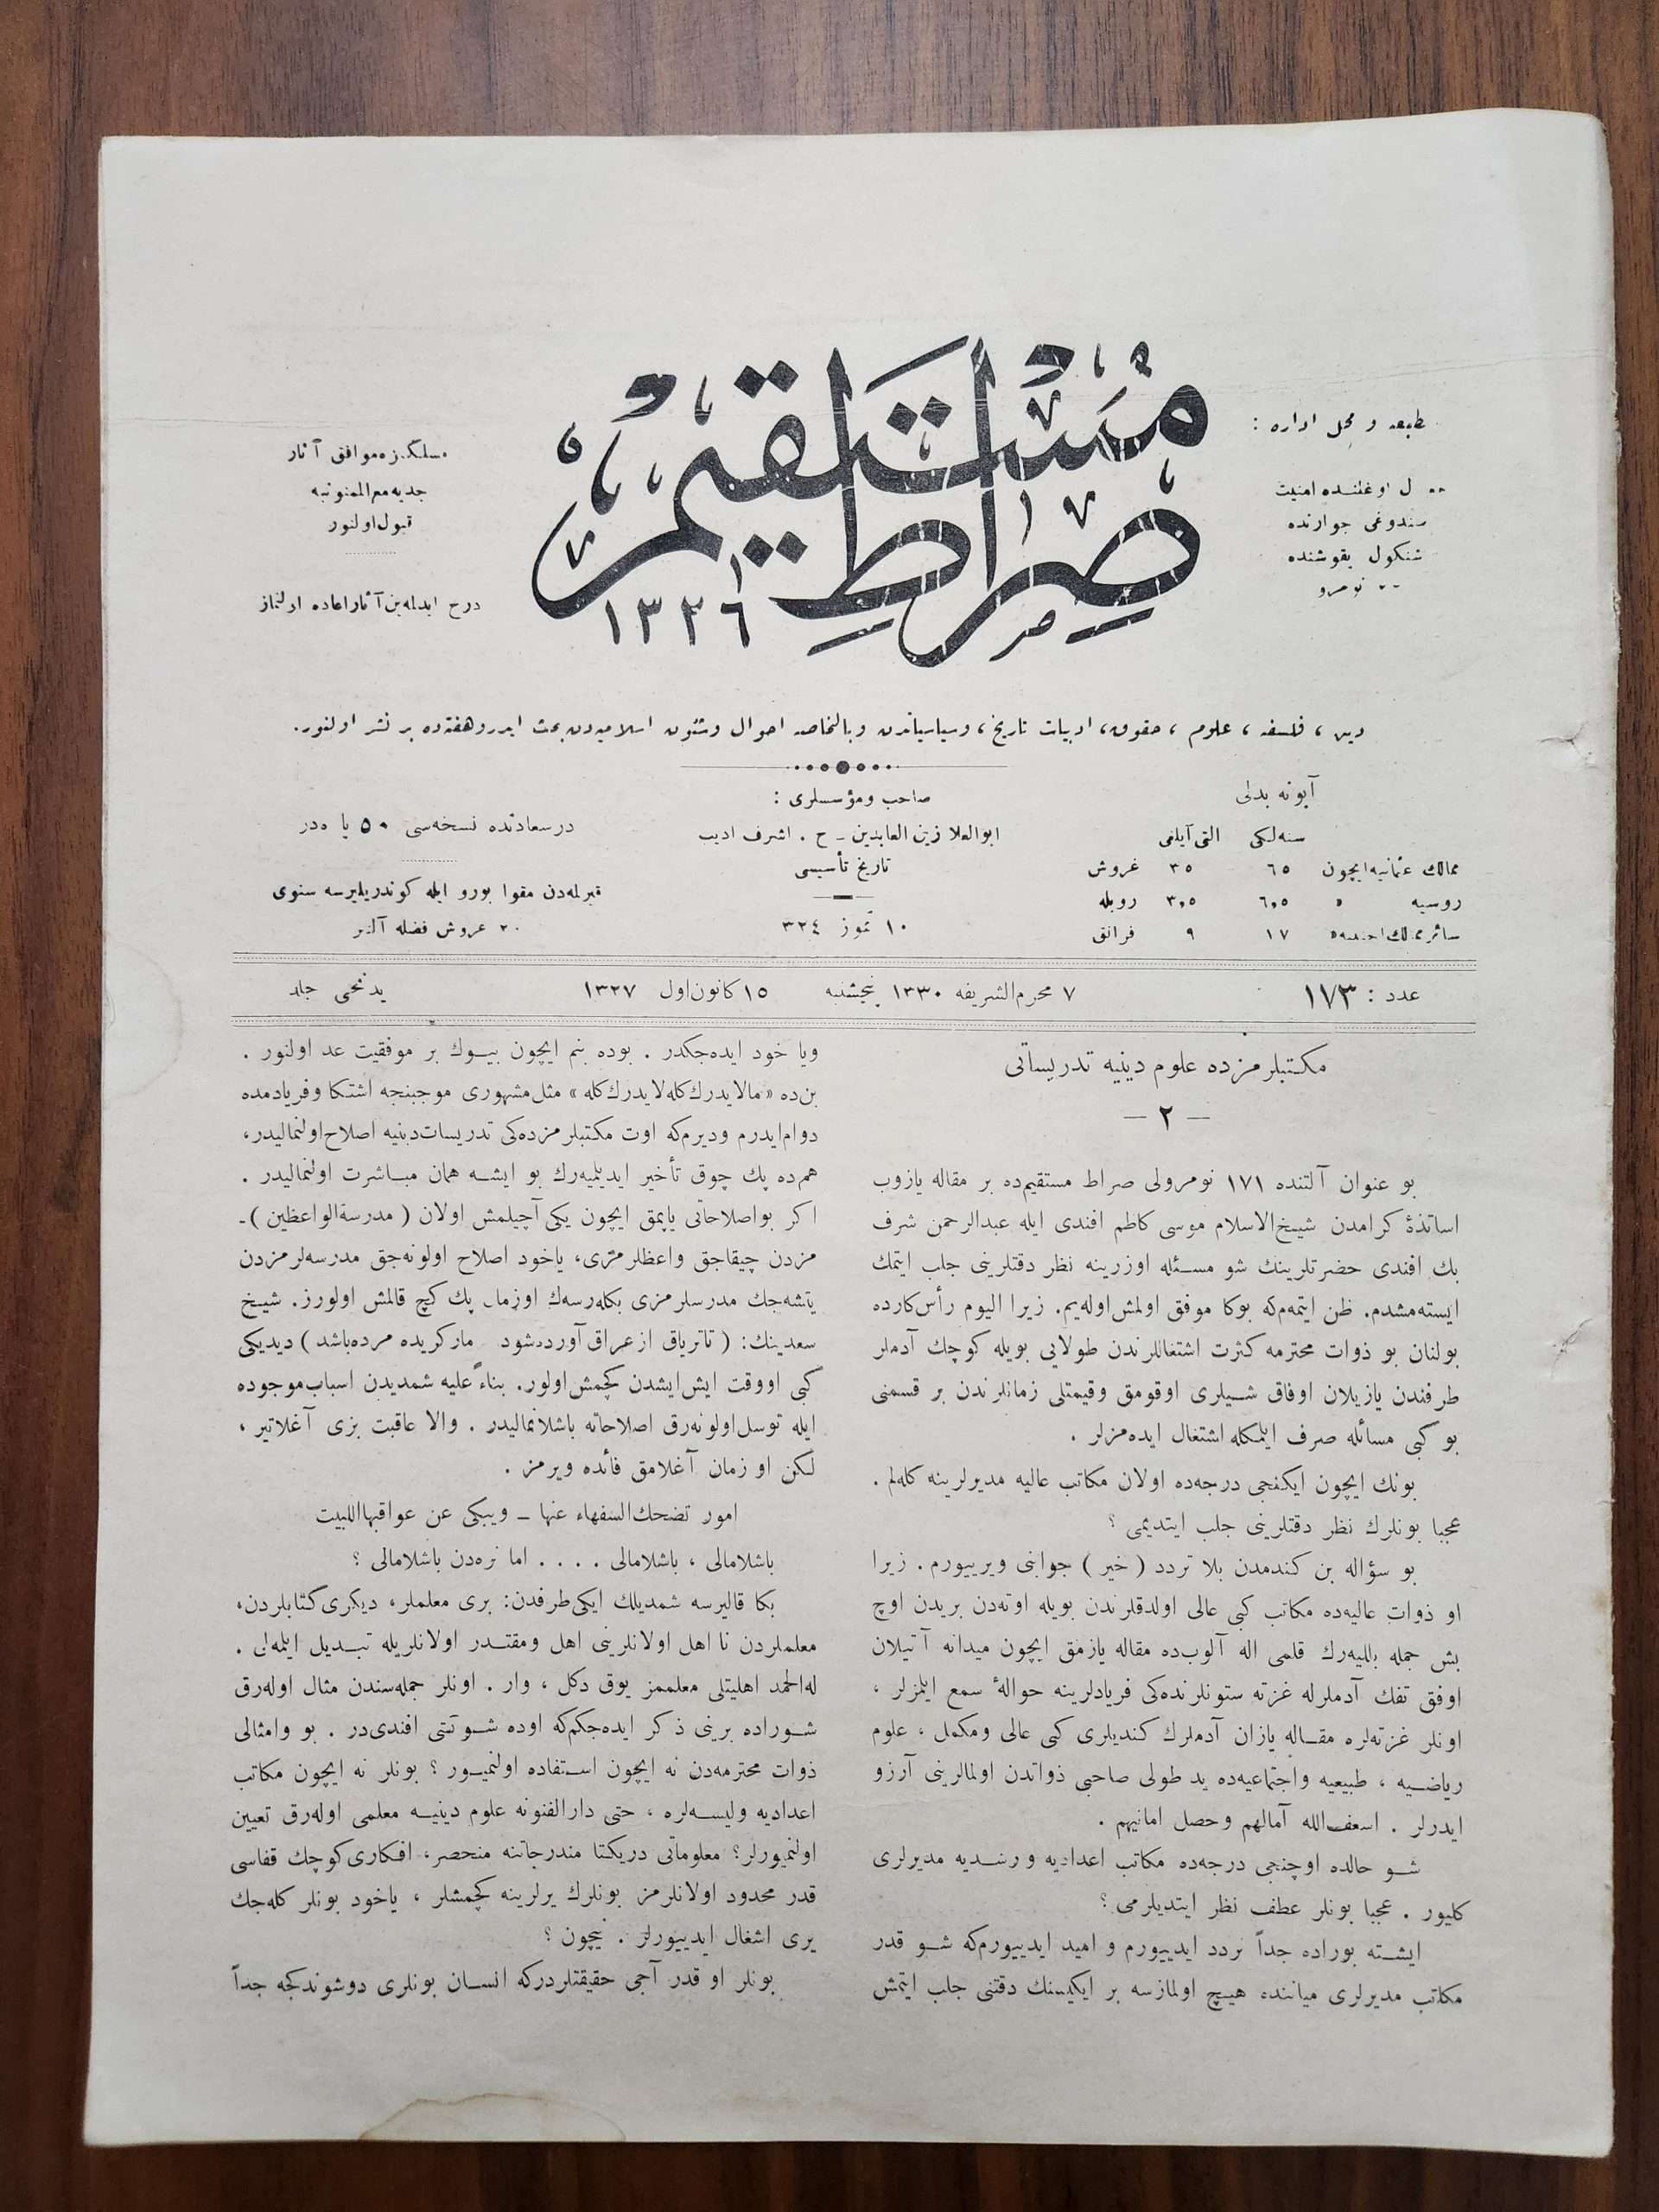 صراط مستقیم
١٣٢٦
محل اداره :
امنیت
جوارنده
شنكول یقوشنده
نومرو
مسلكمزه موافق آثار
جدیه مع الممنونیه
قبول اولنور
درج ایدلمه‌ین آثار اعاده اولنماز
دین ، فلسفه ، علوم ، حقوق ، ادبیات تاریخ ، وسیاسیاتدن وبالخاصه احوال وشئون اسلامیه‌دن بحث ایدر وهفته‌ده بر نشر اولنور.
آبونه بدلی
سنه‌لكی التی آیلغی
ممالك عثمانیه ایچون ٦٥ ٣٥ غروش
روسیه » ٦,٥ ٣,٥ روبله
سائر ممالك اجنبیه » ١٧ ٩ فرانق
صاحب ومؤسسلری :
ابوالعلا زین العابدین ـ ح . اشرف ادیب
تاریخ تأسیسی
١٠ تموز ٣٢٤
درسعادتده نسخه‌سی ٥٠ پاره‌در
قیرلمه‌دن مقوا بورو ایله كوندریلیرسه سنوی
٢٠ غروش فضله آلنیر
عدد : ١٧٣
٧ محرم‌الشریفه ١٣٣٠ پنجشنبه ١٥ كانون‌اول ١٣٢٧
یدنجی جلد
مكتبلرمزده علوم دینیه تدریساتی
— ٢ —
بو عنوان آلتنده ١٧١ نومرولی صراط مستقیم‌ده بر مقاله یازوب
اساتذهٔ كرامدن شیخ‌الاسلام موسی كاظم افندی ایله عبدالرحمن شرف
بك افندی حضرتلرینك شو مسـئله اوزرینه نظر دقتلرینی جلب ایتمك
ایسته‌مشدم. ظن ایتمه‌م‌كه بوكا موفق اولمش‌اوله‌یم. زیرا الیوم رأس‌كارده
بولنان بو ذوات محترمه كثرت اشتغاللرندن طولایی بویله كوچك آدملر
طرفندن یازیلان اوفاق شـیلری اوقومق وقیمتلی زمانلرندن بر قسمنی
بو كبی مسائله صرف ایلمكله اشتغال ایده‌مزلر .
بونك ایچون ایكنجی درجه‌ده اولان مكاتب عالیه مدیرلرینه كله‌لم .
عجبا بونلرك نظر دقتلرینی جلب ایتدیمی ؟
بو سؤاله بن كندمدن بلا تردد ( خیر ) جوابنی ویرییورم . زیرا
او ذوات عالیه‌ده مكاتب كبی عالی اولدقلرندن بویله اوته‌دن بریدن اوچ
بش جمله بللیه‌رك قلمی اله آلوب‌ده مقاله یازمق ایچون میدانه آتیلان
اوفق تفك آدملرله غزته ستونلرنده‌كی فریادلرینه حوالهٔ سمع ایلمزلر ،
اونلر غزته‌لره مقـاله یازان آدملرك كندیلری كبی عالی ومكمل ، علوم
ریاضـیه ، طبیعیه واجتماعیه‌ده ید طولی صاحبی ذواتدن اولمالرینی آرزو
ایدرلر . اسعف‌الله آمالهم وحصل امانیهم .
شـو حالده اوچنجی درجه‌ده مكاتب اعدادیه ورشـدیه مدیرلری
كلیور . عجبا بونلر عطف نظر ایتدیلرمی ؟
ایشـته بوراده جداً تردد ایدییورم و امید ایدییورم‌كه شـو قدر
مكاتب مدیرلری میاننده هیچ اولمازسه بر ایكیسنك دقتنی جلب ایتمش
ویا خود ایده‌جكدر . بوده بنم ایچون بیـوك بر موفقیت عد اولنور .
بن‌ده « مالایدرك‌كله لایدرك‌كله » مثل‌مشهوری موجبنجه اشتكا وفریادمده
دوام‌ایدرم ودیرم‌كه اوت مكتبلرمزده‌كی تدریسات‌دینیه اصلاح‌اولنمالیدر،
هم‌ده پك چوق تأخیر ایدیلمیه‌رك بو ایشـه همان مبـاشرت اولنمالیدر .
اكر بواصلاحاتی یاپمق ایچون یكی آچیلمش اولان ( مدرسةالواعظین )ـ
مزدن چیقاجق واعظلرمزی، یاخود اصلاح اولونه‌جق مدرسه‌لرمزدن
یتشه‌جك مدرسلرمزی بكله‌رسه‌ك اوزمان پك كچ قالمش اولورز. شیخ
سعدینك: ( تاتریاق ازعراق‌آورده‌شود مار كزیده مرده‌باشد ) دیدیكی
كبی اووقت ایش‌ایشدن كچمش‌اولور. بناءً علیه شمدیدن اسباب‌موجوده
ایله توسل‌اولونه‌رق اصلاحاته باشلانمالیدر . والا عاقبت بزی آغلاتیر ،
لكن او زمان آغلامق فائده ویرمز .
امور تضحك‌السفهاء عنها ـ ویبكی عن عواقبهااللبیت
باشلامالی ، باشلامالی . . . . اما نره‌دن باشلامالی ؟
بكا قالیرسه شمدیلك ایكی‌طرفدن: بری معلملر، دیكری كتابلردن،
معلملردن نا اهل اولانلرینی اهل ومقتـدر اولانلریله تبـدیل ایلمه‌لی .
له‌الحمد اهلیتلی معلممز یوق دكل ، وار . اونلر جمله‌سندن مثال اوله‌رق
شـوراده برینی ذكر ایده‌جكم‌كه اوده شـوكتی افندی‌در . بو وامثالی
ذوات محترمه‌دن نه ایچون اسـتفاده اولنمیـور ؟ بونلر نه ایچون مكاتب
اعدادیه ولیسـه‌لره ، حتی دارالفنونه علوم دینیـه معلمی اوله‌رق تعیین
اولنمیورلر؟ معلوماتی دریكتا مندرجاتنه منحصر، افكاری كوچك قفاسی
قدر محدود اولانلرمز بونلرك یرلرینه كچمشلر ، یاخود بونلر كله‌جك
یری اشغال ایدییورلر . نیچون ؟
بونلر او قدر آجی حقیقتلردركه انسـان بونلری دوشوندكجه جداً